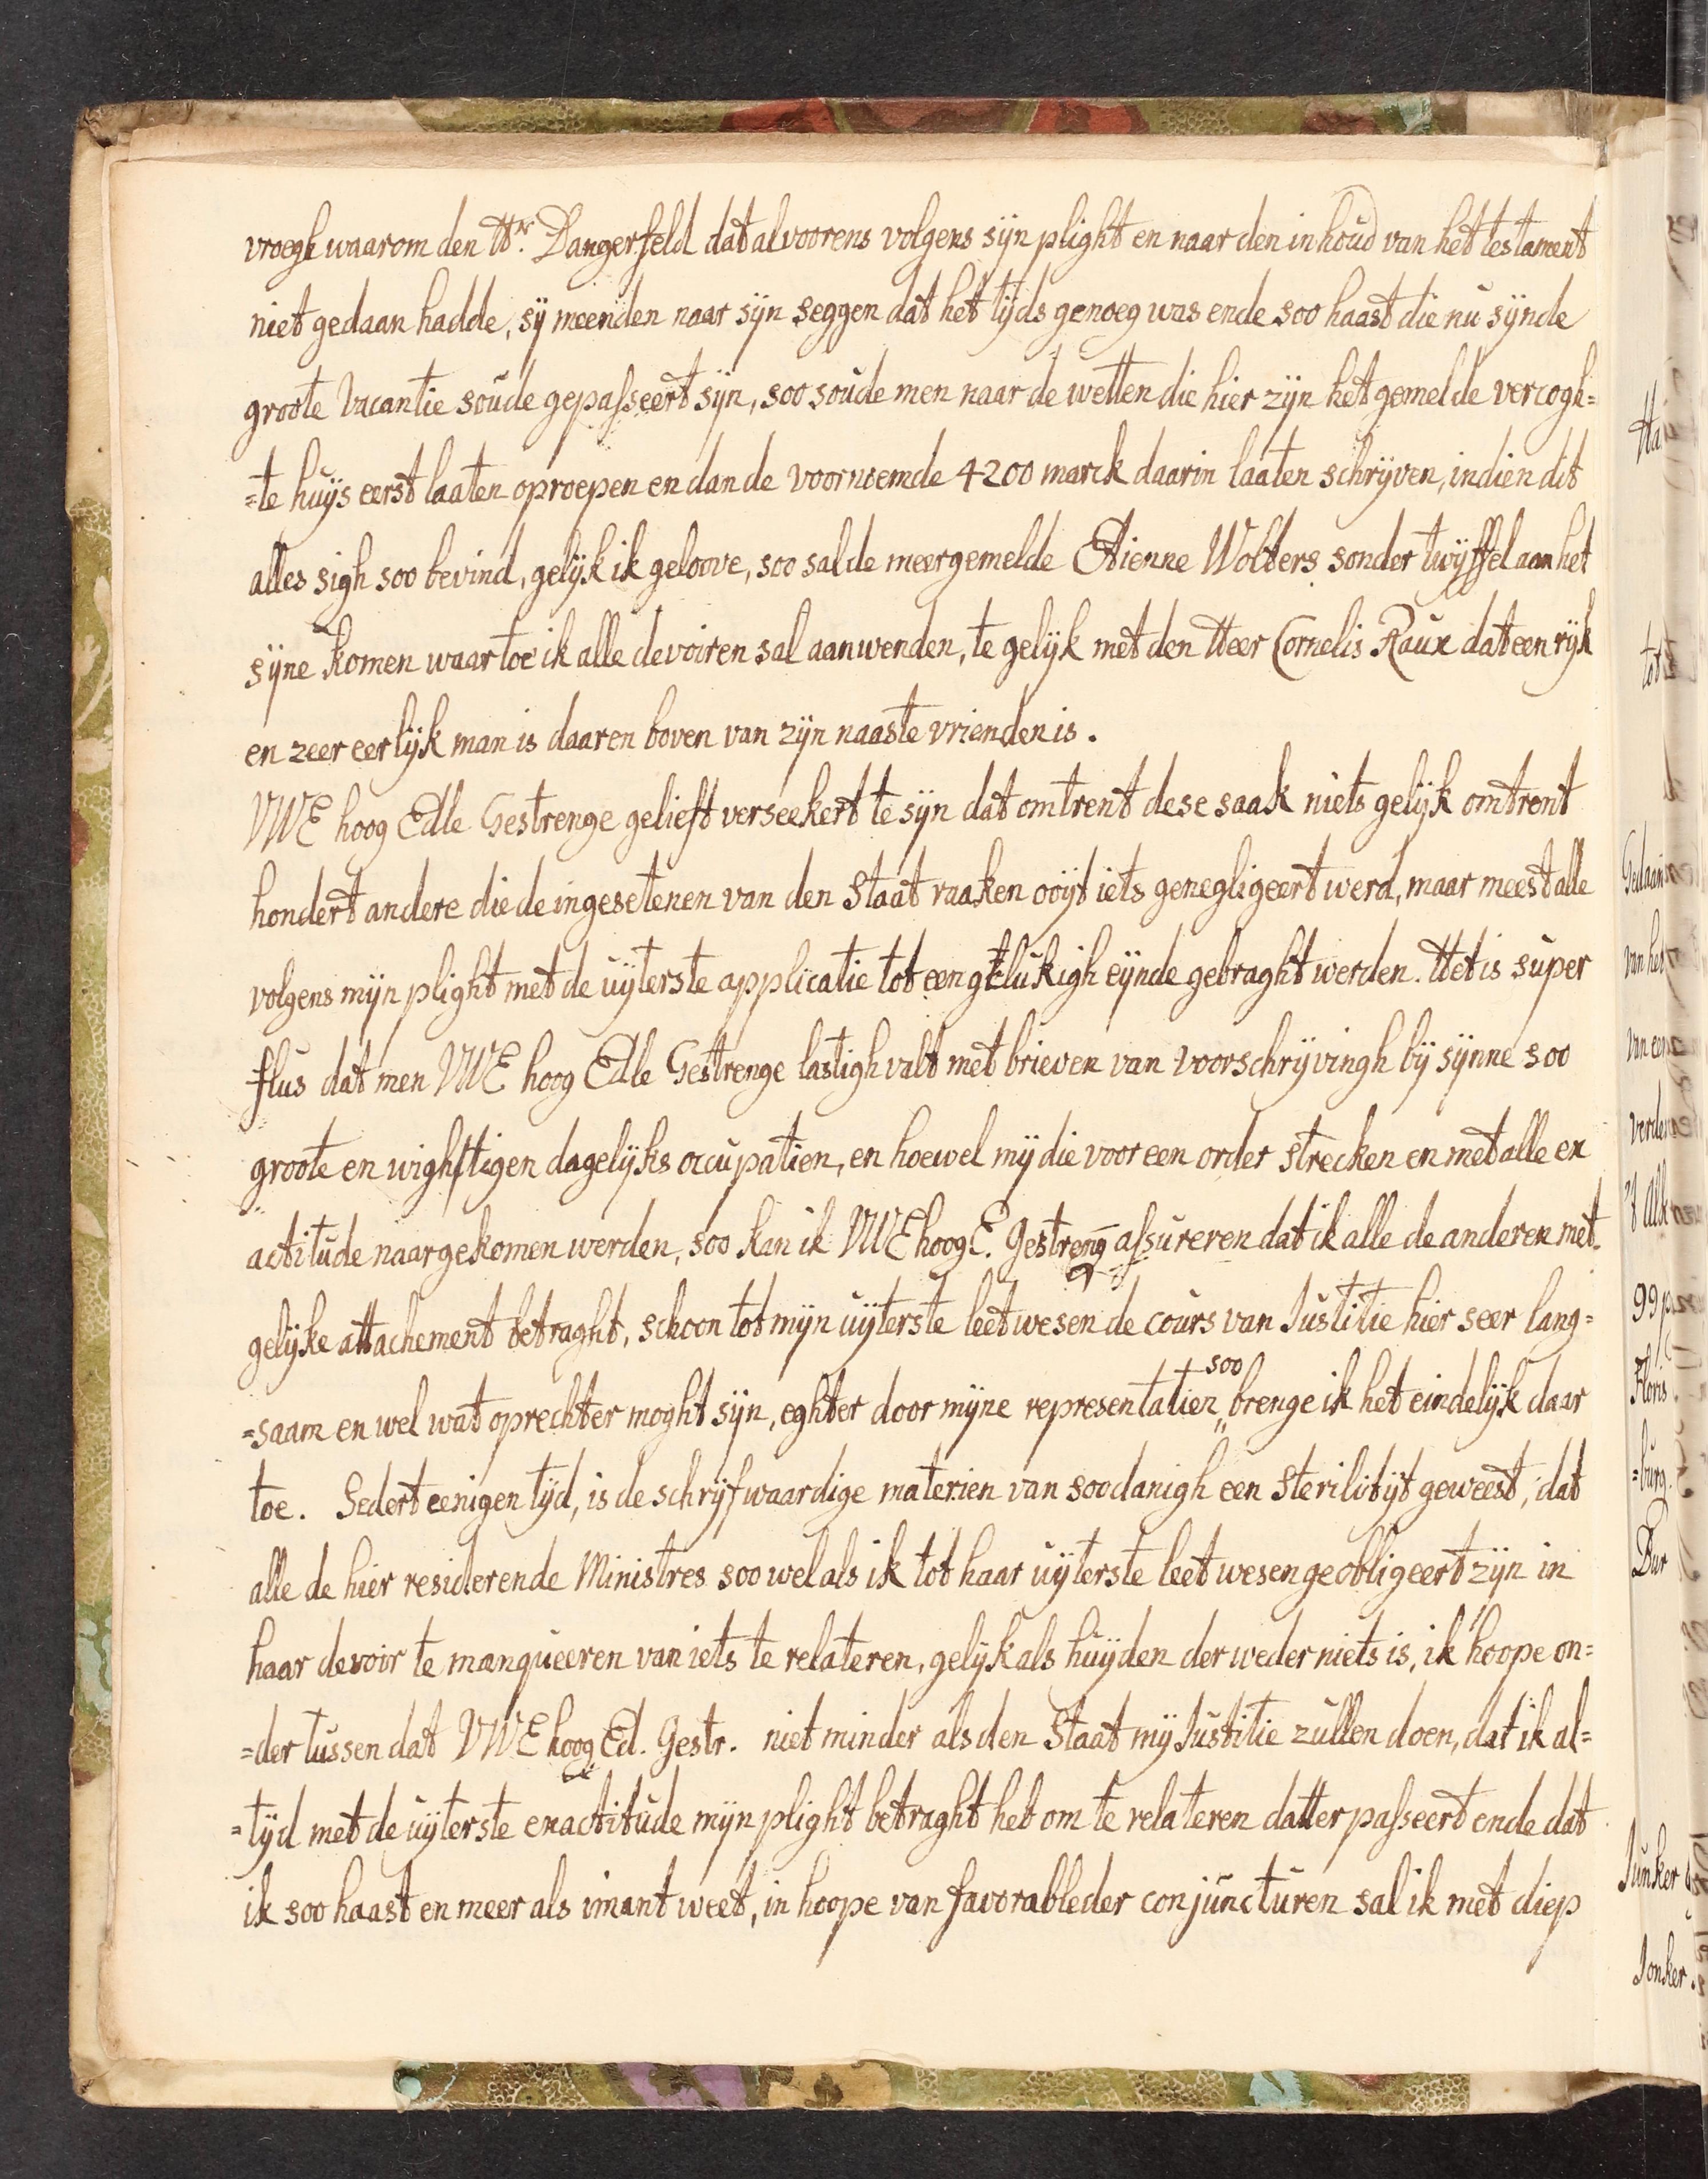 vroegh waarom den Hr. Dangerfeld dat alvoorens volgens sijn plight en naar den inhoud van het testament
niet gedaan hadde, sij meenden naar sijn seggen dat het tijds genoeg was ende soo haast die nu sijnde
groote vacantie soude gepasseert sijn, soo soude men naar de wetten die hier zijn het gemelde vercogh=
=te huijs eerst laaten oproepen en dan de voornoemde 4200 marck daarin laaten schrijven, indien dit
alles sigh soo bevind, gelijk ik geloove, soo sal de meergemelde Etienne Wolters sonder twijffel aan het
sijne komen waartoe ik alle devoiren sal aanwenden, te gelijk met den Heer Cornelis Raux dat een rijk
en zeer eerlijk man is daaren boven van zijn naaste vrienden is.
VWE hoog Edle Gestrenge gelieft verseekert te sijn dat omtrent dese saak niets gelijk omtrent
hondert andere die de ingesetenen van den Staat raaken ooijt iets genegligeert werd, maar meest alle
volgens mijn plight met de uijterste applicatie tot een gelukigh eijnde gebraght werden. Het is super
flus dat men VWE hoog Edle Gestrenge lastigh valt met brieven van voorschrijvingh bij sijnne soo
groote en wightigen dagelijks occupatien, en hoewel mij die voor een order strecken en met alle ex
actitude naargekomen werden, soo kan ik VWE hoog E. Gestreng assureren dat ik alle de anderen met
gelijke attachement betraght, schoon tot mijn uijterste leetwesen de cours van Justitie hier seer lang=
=saam en wel wat oprechter moght sijn, eghter door mijne representatien soo brenge ik het eindelijk daar
toe. Sedert eenigen tijd, is de schrijfwaardige materien van soodanigh een steriliteijt geweest, dat
alle de hier residerende Ministres soo wel als ik tot haar uijterste leetwesen geobligeert zijn in
haar devoir te manqueeren van iets te relateren, gelijk als huijden der weder niets is, ik hoope on=
=der tussen dat VWE hoog Ed. Gestr. niet minder als den Staat mij Justitie zullen doen, dat ik al=
=tijd met de uijterste exactitude mijn plight betraght heb om te relateren datter passeert ende dat
ik soo haast en meer als imant weet, in hoope van favorableder conjuncturen sal ik met diep